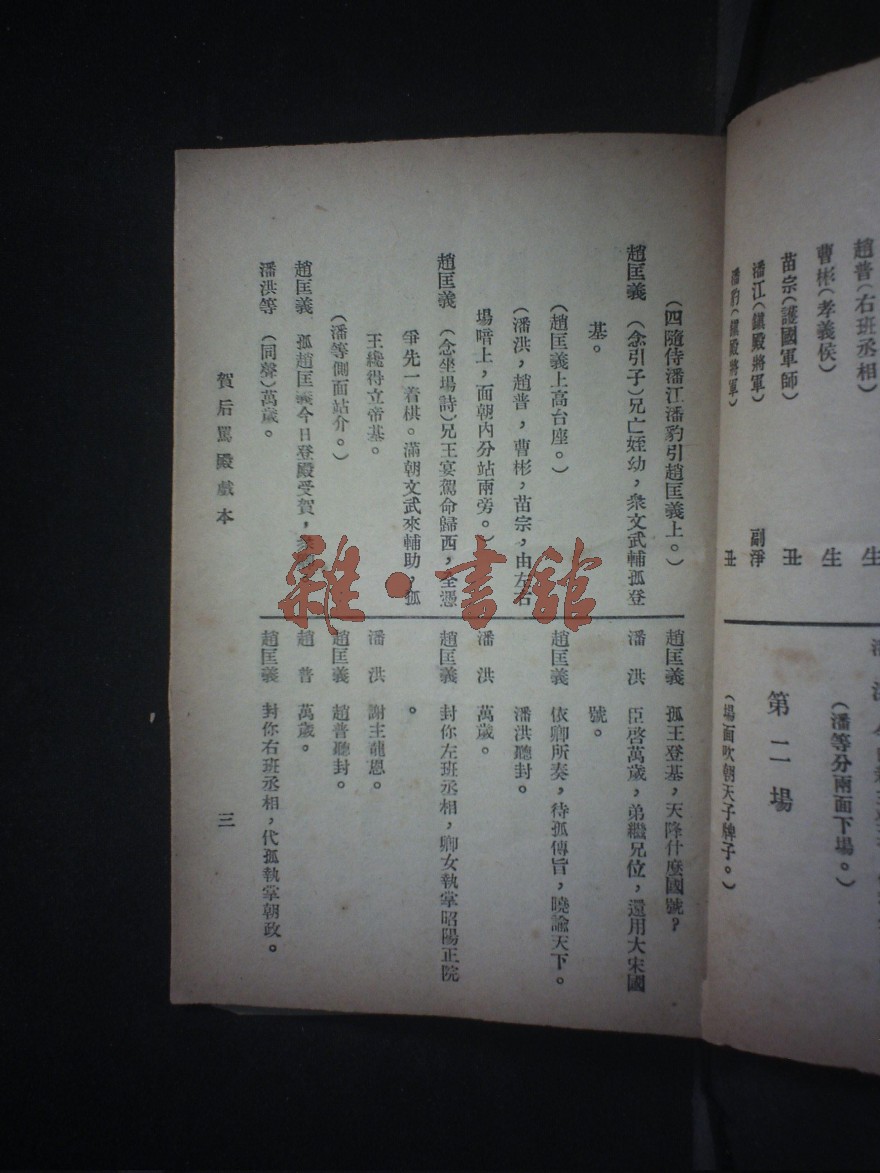 趙普(右班丞相)
生
曹彬(孝義侯)
生
苗宗(護國軍師)
丑
潘江(鎮殿將軍)
副淨
潘豹(鎮殿將軍)
丑
(潘等分兩面下場。)
第二場
(場面吹朝天子牌子。)
(四隨侍潘江潘豹引趙匡義上。)
趙匡義 (念引子)兄亡姪幼,衆文武輔孤登
基。
(趙匡義上高台座。)
(潘洪,趙普,曹彬,苗宗,由左右
場暗上,面朝內分站兩旁。)
趙匡義 (念坐場詩)兄王宴駕命歸西,全憑
爭先一着棋。滿朝文武來輔助,孤
王纔得立帝基。
(潘等側面站介。)
趙匡義 孤趙匡義今日登殿受賀,
潘洪等 (同聲)萬歲。
趙匡義 孤王登基,天降什麼國號?
潘洪 臣啓萬歲,弟繼兄位,還用大宋國
號。
趙匡義 依卿所奏,待孤傳旨,曉諭天下。
潘洪聽封。
潘洪 萬歲。
趙匡義 封你左班丞相,卿女執掌昭陽正院
。
潘洪 謝主龍恩。
趙匡義 趙普聽封。
趙普 萬歲。
趙匡義 封你右班丞相,代孤執掌朝政。
賀后罵殿戲本
三
雜·書館